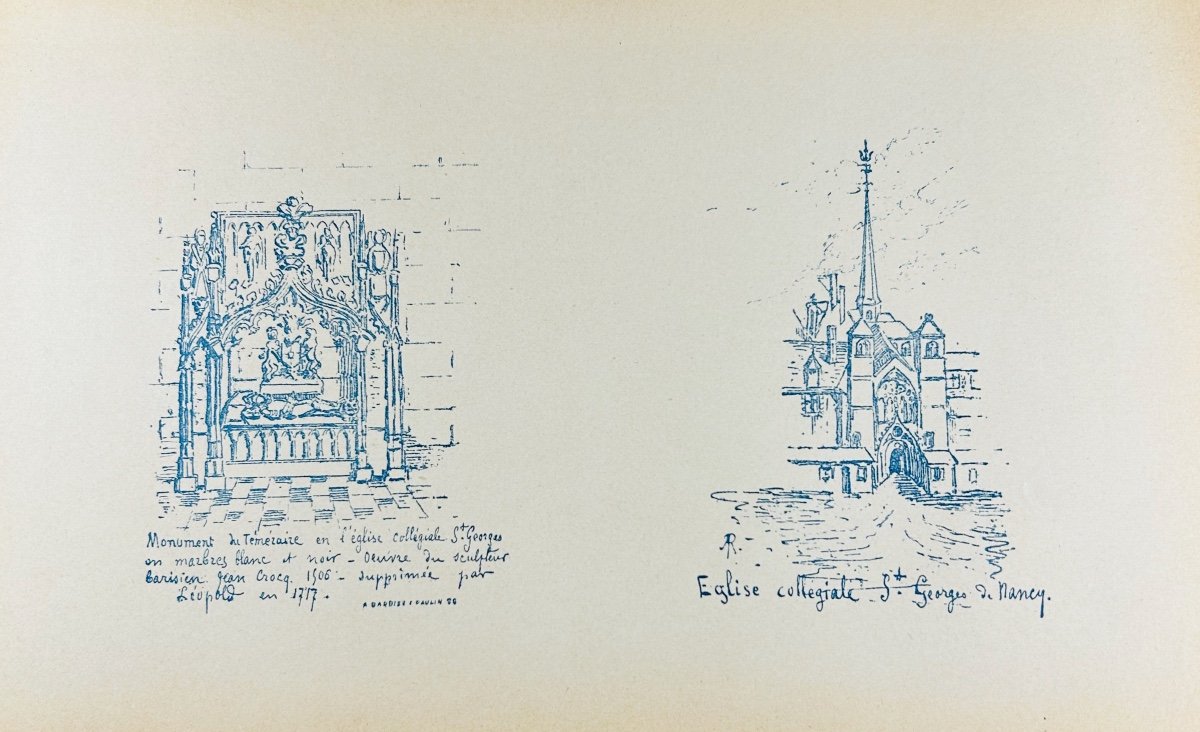 Monument du Téméraire en l'église collégiale St Georges
en marbres blanc et noir - Oeuvre du sculpteur
barisien Jean Crocq 1506 - supprimée par
Léopold en 1717.
AR.
Eglise collégiale St Georges de Nancy.